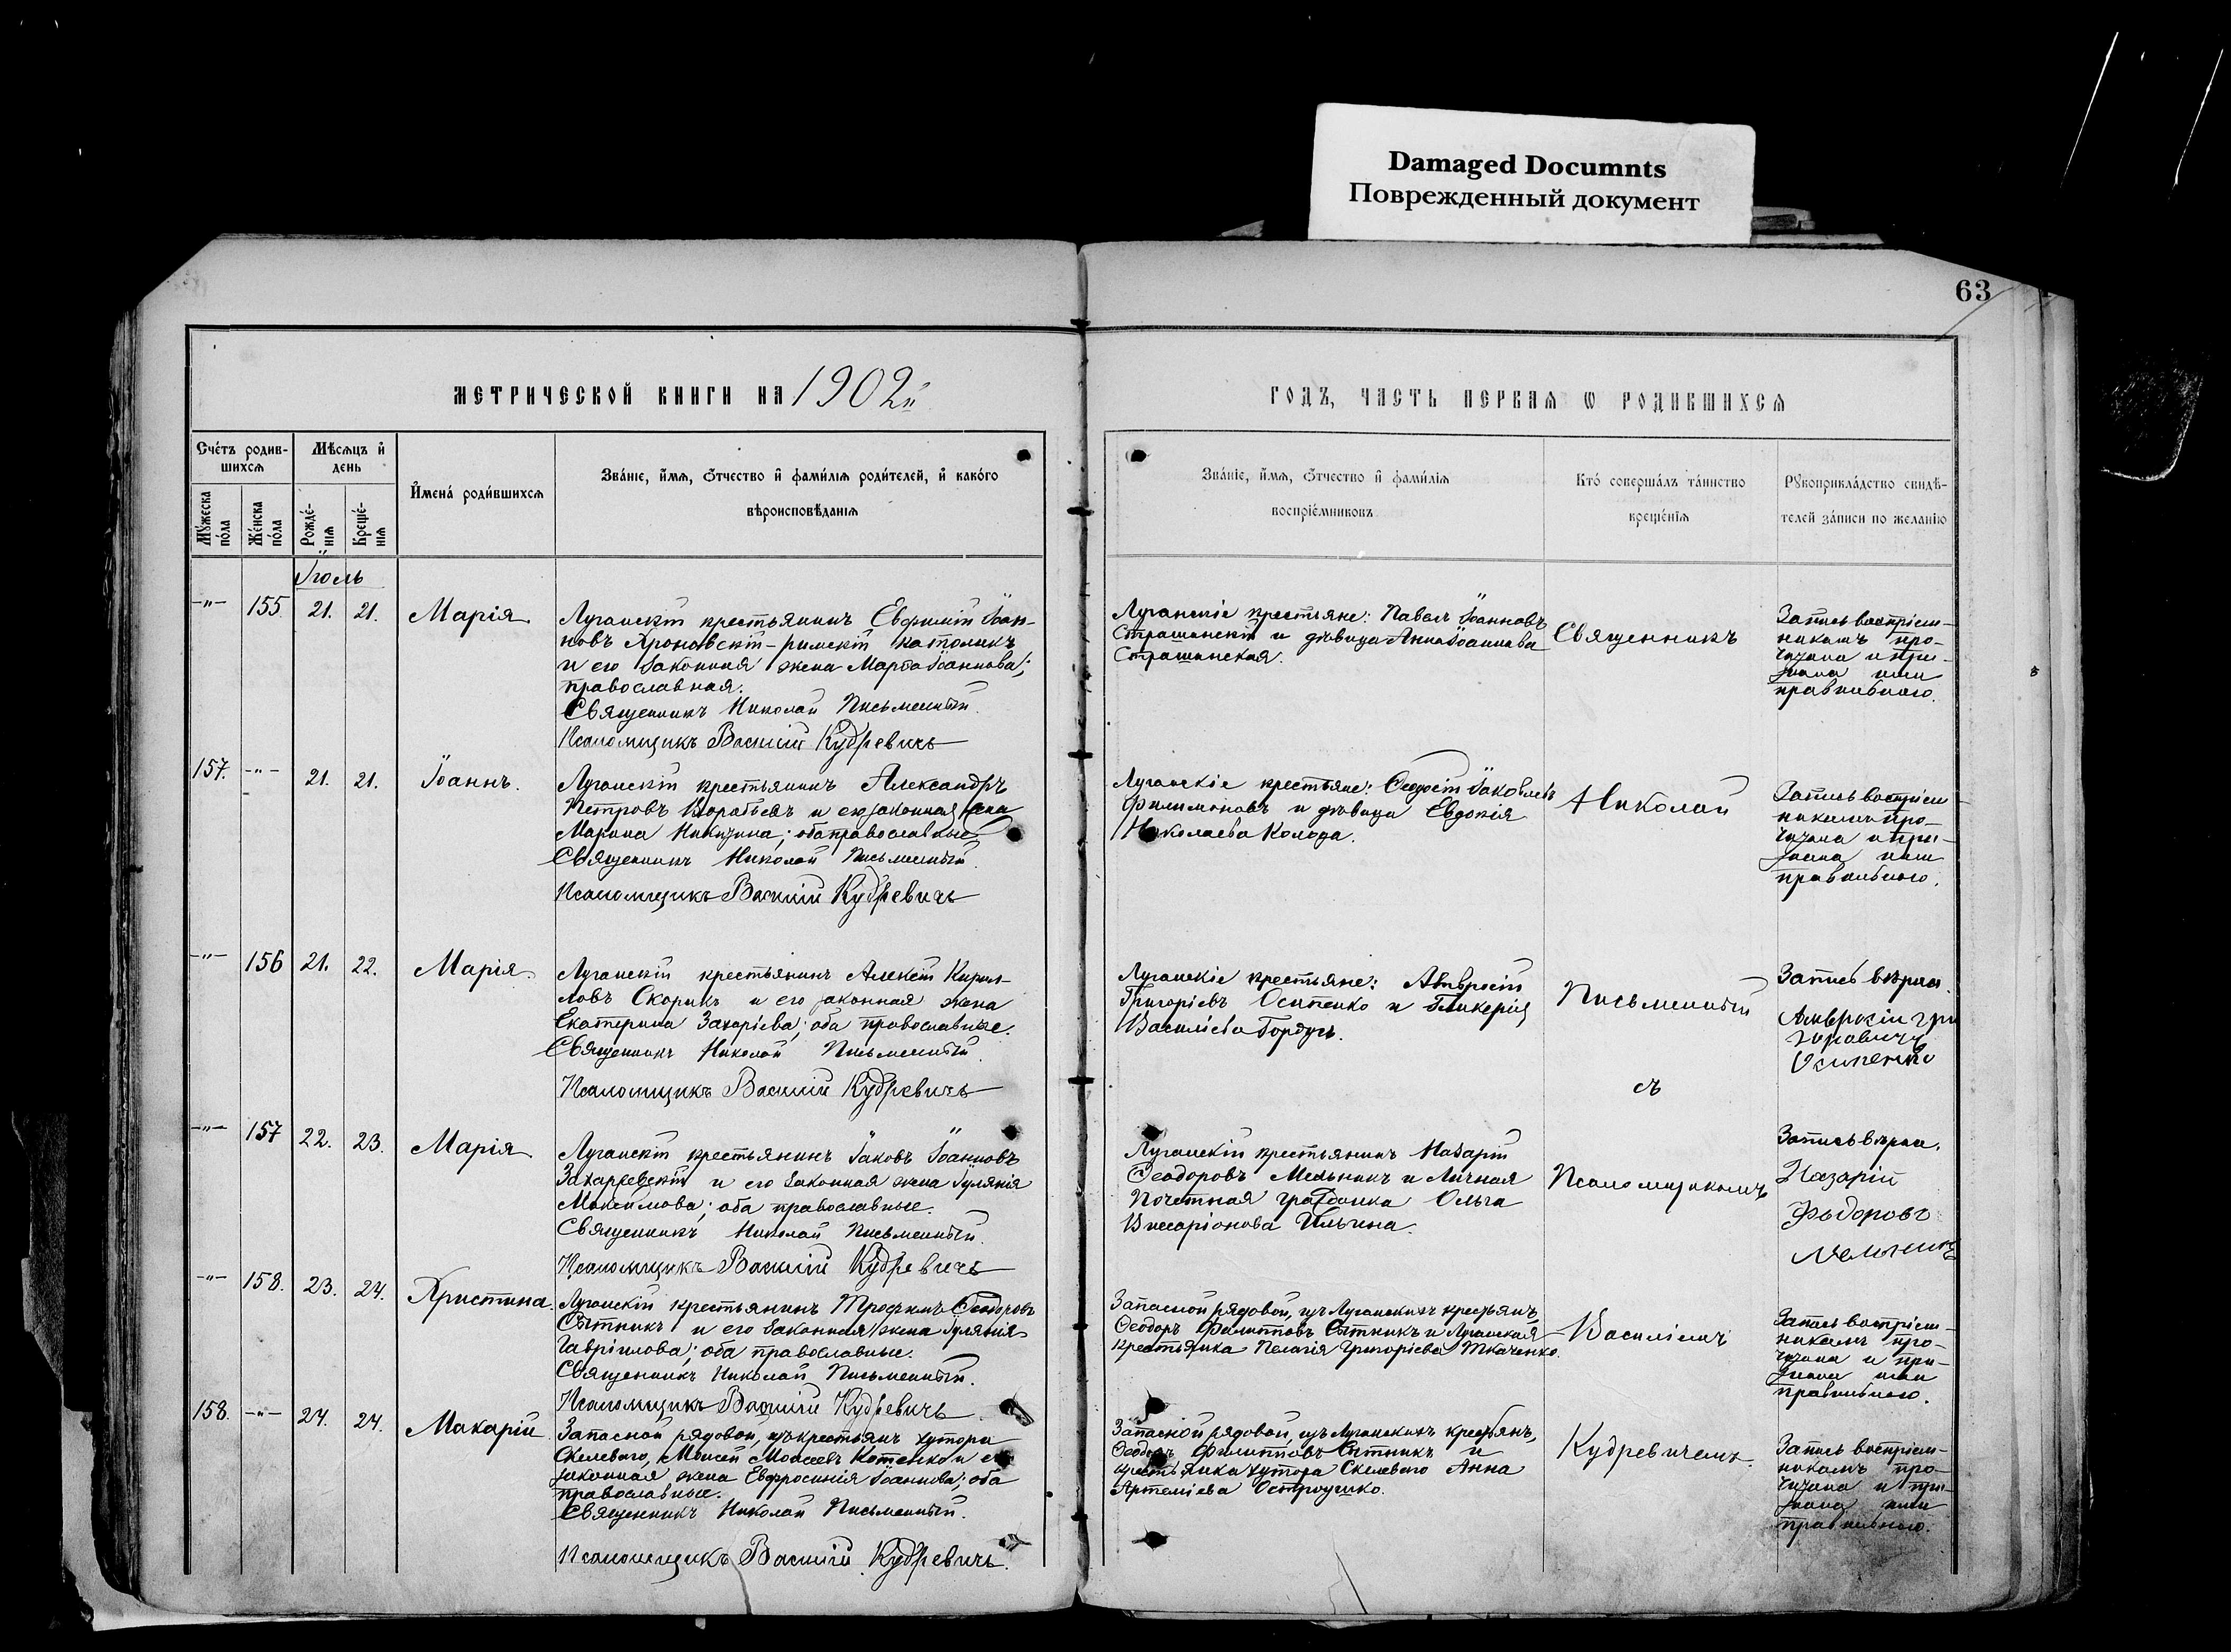 Damaged Documnts
Поврежденный документ
63
МЕТРИЧЕСКОЙ КНИГИ НА 1902й
ГОДЪ, ЧАСТЬ ПЕРВАЯ Ѡ РОДИВШИХСЯ
Счетъ родив-
шихся
Мѣсяцъ и
день
Имена родившихся
Званіе, имя, отчество и фамилія родителей, и какого
вѣроисповѣданія
Мужеска пола
Женска пола
Рожде-
нія
Креще-
нія
Званіе, имя, отчество и фамилія
воспріемниковъ
Кто совершалъ таинство
крещенія
Рукоприкладство свидѣ-
телей записи по желанію
Іюль
-"- 155 21. 21. Марія.
Луганскій крестьянинъ Евфимій Іоан-
новъ Хроновскій - римскій католикъ
и его законная жена Марѳа Іоаннова;
православная.
Священникъ Николай Письменный.
Псаломщикъ Василій Кудревичъ
Луганскіе крестьяне: Павелъ Іоанновъ
Страшинскій и дѣвица Анна Іоаннова
Страшинская.
Священникъ
Запись воспріем-
никамъ про-
читана и при-
знана ими
правильною.
157. -"- 21. 21. Іоаннъ.
Луганскій крестьянинъ Александръ
Петровъ Воробьевъ и его законная жена
Марина Никитина; оба православные
Священникъ Николай Письменный.
Псаломщикъ Василій Кудревичъ
Луганскіе крестьяне: Ѳеодосій Іаковлевъ
Филимоновъ и дѣвица Евдокія
Николаева Колода.
Николай
Запись воспріем-
никамъ про-
читана и при-
знана ими
правильною.
-"- 156 21. 22. Марія.
Луганскій крестьянинъ Алексѣй Кирил-
ловъ Скорикъ и его законная жена
Екатерина Захаріева; оба православные.
Священникъ Николай Письменный.
Псаломщикъ Василій Кудревичъ
Луганскіе крестьяне: Амвросій
Григоріевъ Осипенко и Гликерія
Василіева Гордусь.
Письменный
съ
Запись вѣрна.
Амвросій Гри
горовичъ
Осипенко
-"- 157 22. 23. Марія
Луганскій крестьянинъ Іаковъ Іоанновъ
Захаревскій и его законная жена Іулянія
Максимова; оба православные.
Священникъ Николай Письменный.
Псаломщикъ Василій Кудревичъ
Луганскій крестьянинъ Назарій
Ѳеодоровъ Мельникъ и Личная
Почетная гражданка Ольга
Виссаріонова Ильина.
Псаломщикомъ
Запись вѣрна.
Назарій
Фьдоровъ
Мельникъ
-"- 158. 23. 24. Христина.
Луганскій крестьянинъ Трофимъ Ѳеодоровъ
Сытникъ и его законная жена Іулянія
Гавріилова; оба православные.
Священникъ Николай Письменный.
Псаломщикъ Василій Кудревичъ
Запасной рядовой, изъ Луганскихъ крестьянъ,
Ѳеодоръ Филипповъ Сытникъ и Луганская
крестьянка Пелагія Григоріева Ткаченко.
Василіемъ
Запись воспріем-
никамъ про-
читана и при-
знана ими
правильною.
158. -"- 24. 24. Макарій
Запасной рядовой, изъ крестьянъ хутора
Скелеваго, Моисей Моисеевъ Котенко и его
законная жена Евфросинія Іоаннова; оба
православные.
Священникъ Николай Письменный.
Псаломщикъ Василій Кудревичъ.
Запасной рядовой, изъ Луганскихъ крестьянъ,
Ѳеодоръ Филипповъ Сытникъ и
крестьянка хутора Скелеваго Анна
Артеміева Остроушко.
Кудревичемъ.
Запись воспріем-
никамъ про-
читана и при-
знана ими
правильною.